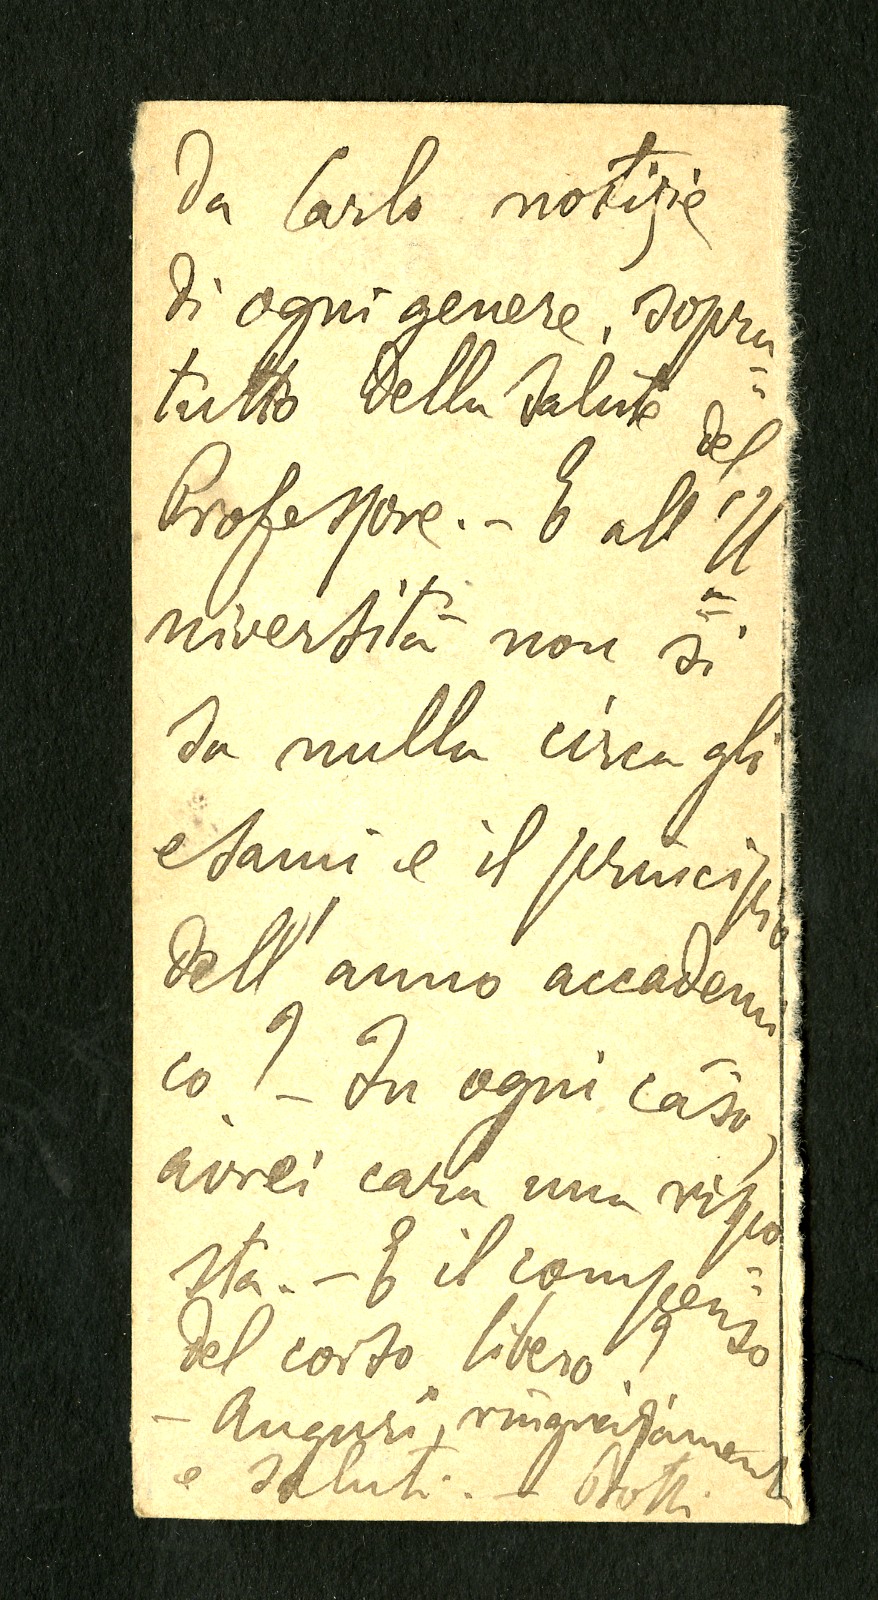 da Carlo notizie
di ogni genere, sopra=
tutto della salute del
Professore. - E all'U=
niversità non si
sa nulla circa gli
esami e il principio
dell'anno accademi
co? - In ogni caso,
avrei cara una rispo=
sta. - E il compenso
del corso libero?
- Auguri, ringraziamenti
e saluti. -